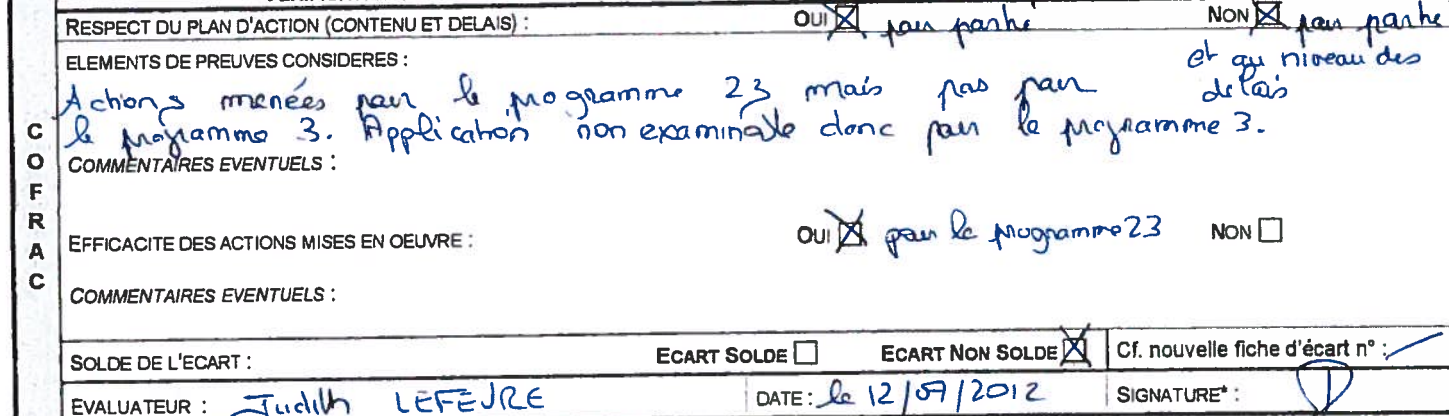 RESPECT DU PLAN D'ACTION (CONTENU ET DELAIS) : OUI ☒ pour partie NON ☒ pour partie
et au niveau des
délais
ELEMENTS DE PREUVES CONSIDERES :
Actions menées pour le programme 23 mais pas pour
le programme 3. Application non examinable donc pour le programme 3.
COFRAC
COMMENTAIRES EVENTUELS :
EFFICACITE DES ACTIONS MISES EN OEUVRE : OUI ☒ pour le programme 23 NON ☐
COMMENTAIRES EVENTUELS :
SOLDE DE L'ECART : ECART SOLDE ☐ ECART NON SOLDE ☒ Cf. nouvelle fiche d'écart n° : /
EVALUATEUR : Judith LEFEVRE DATE : le 12/07/2012 SIGNATURE* :